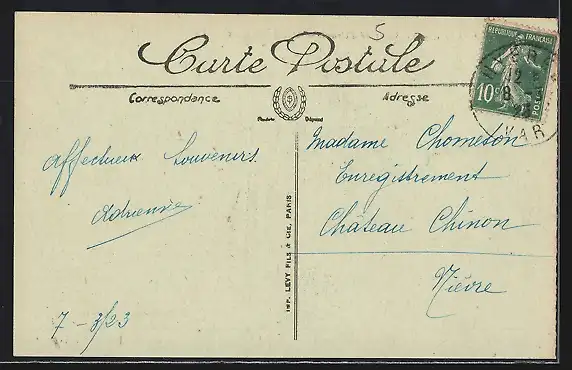 5
Carte Postale
Correspondance
Adresse
RÉPUBLIQUE FRANÇAISE
10c
POSTES
VAR
Modèle Déposé
Affectueux Souvenirs
Adrienne
7 - 3/23
IMP. LEVY FILS & Cie, PARIS
Madame Chomeson
Enregistrement
Château Chinon
Nièvre